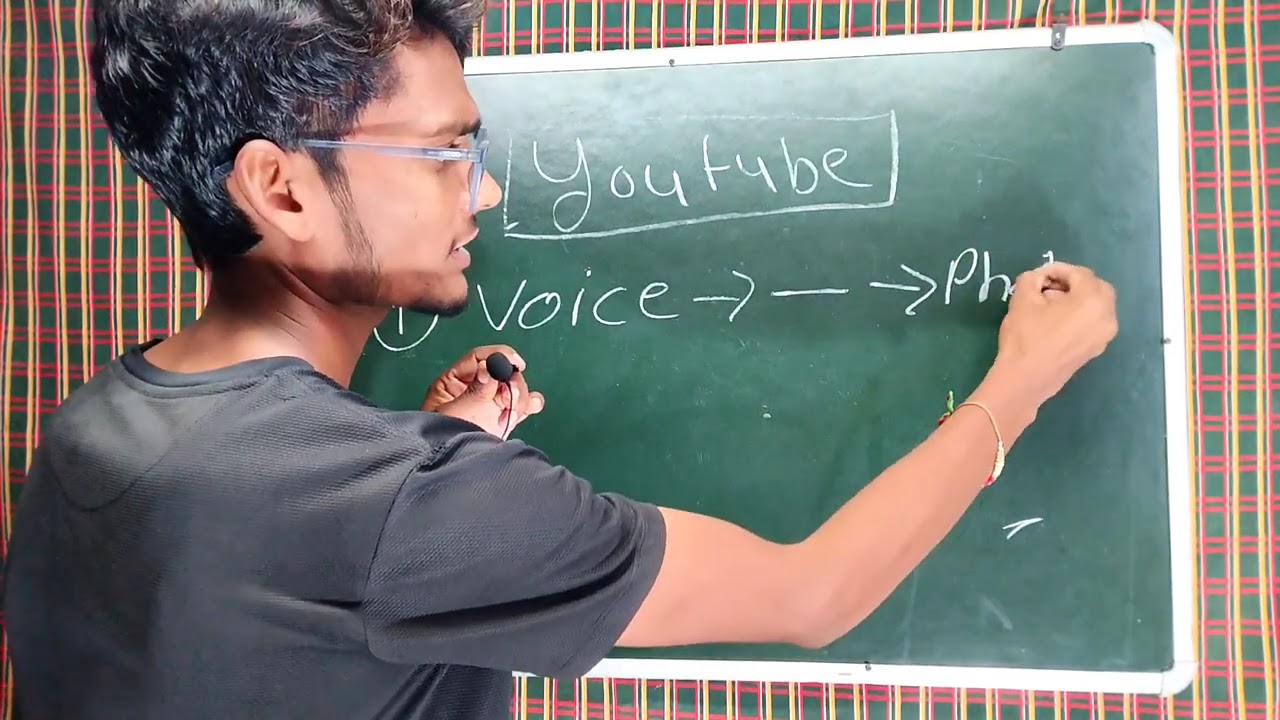 Youtube
① Voice → — →